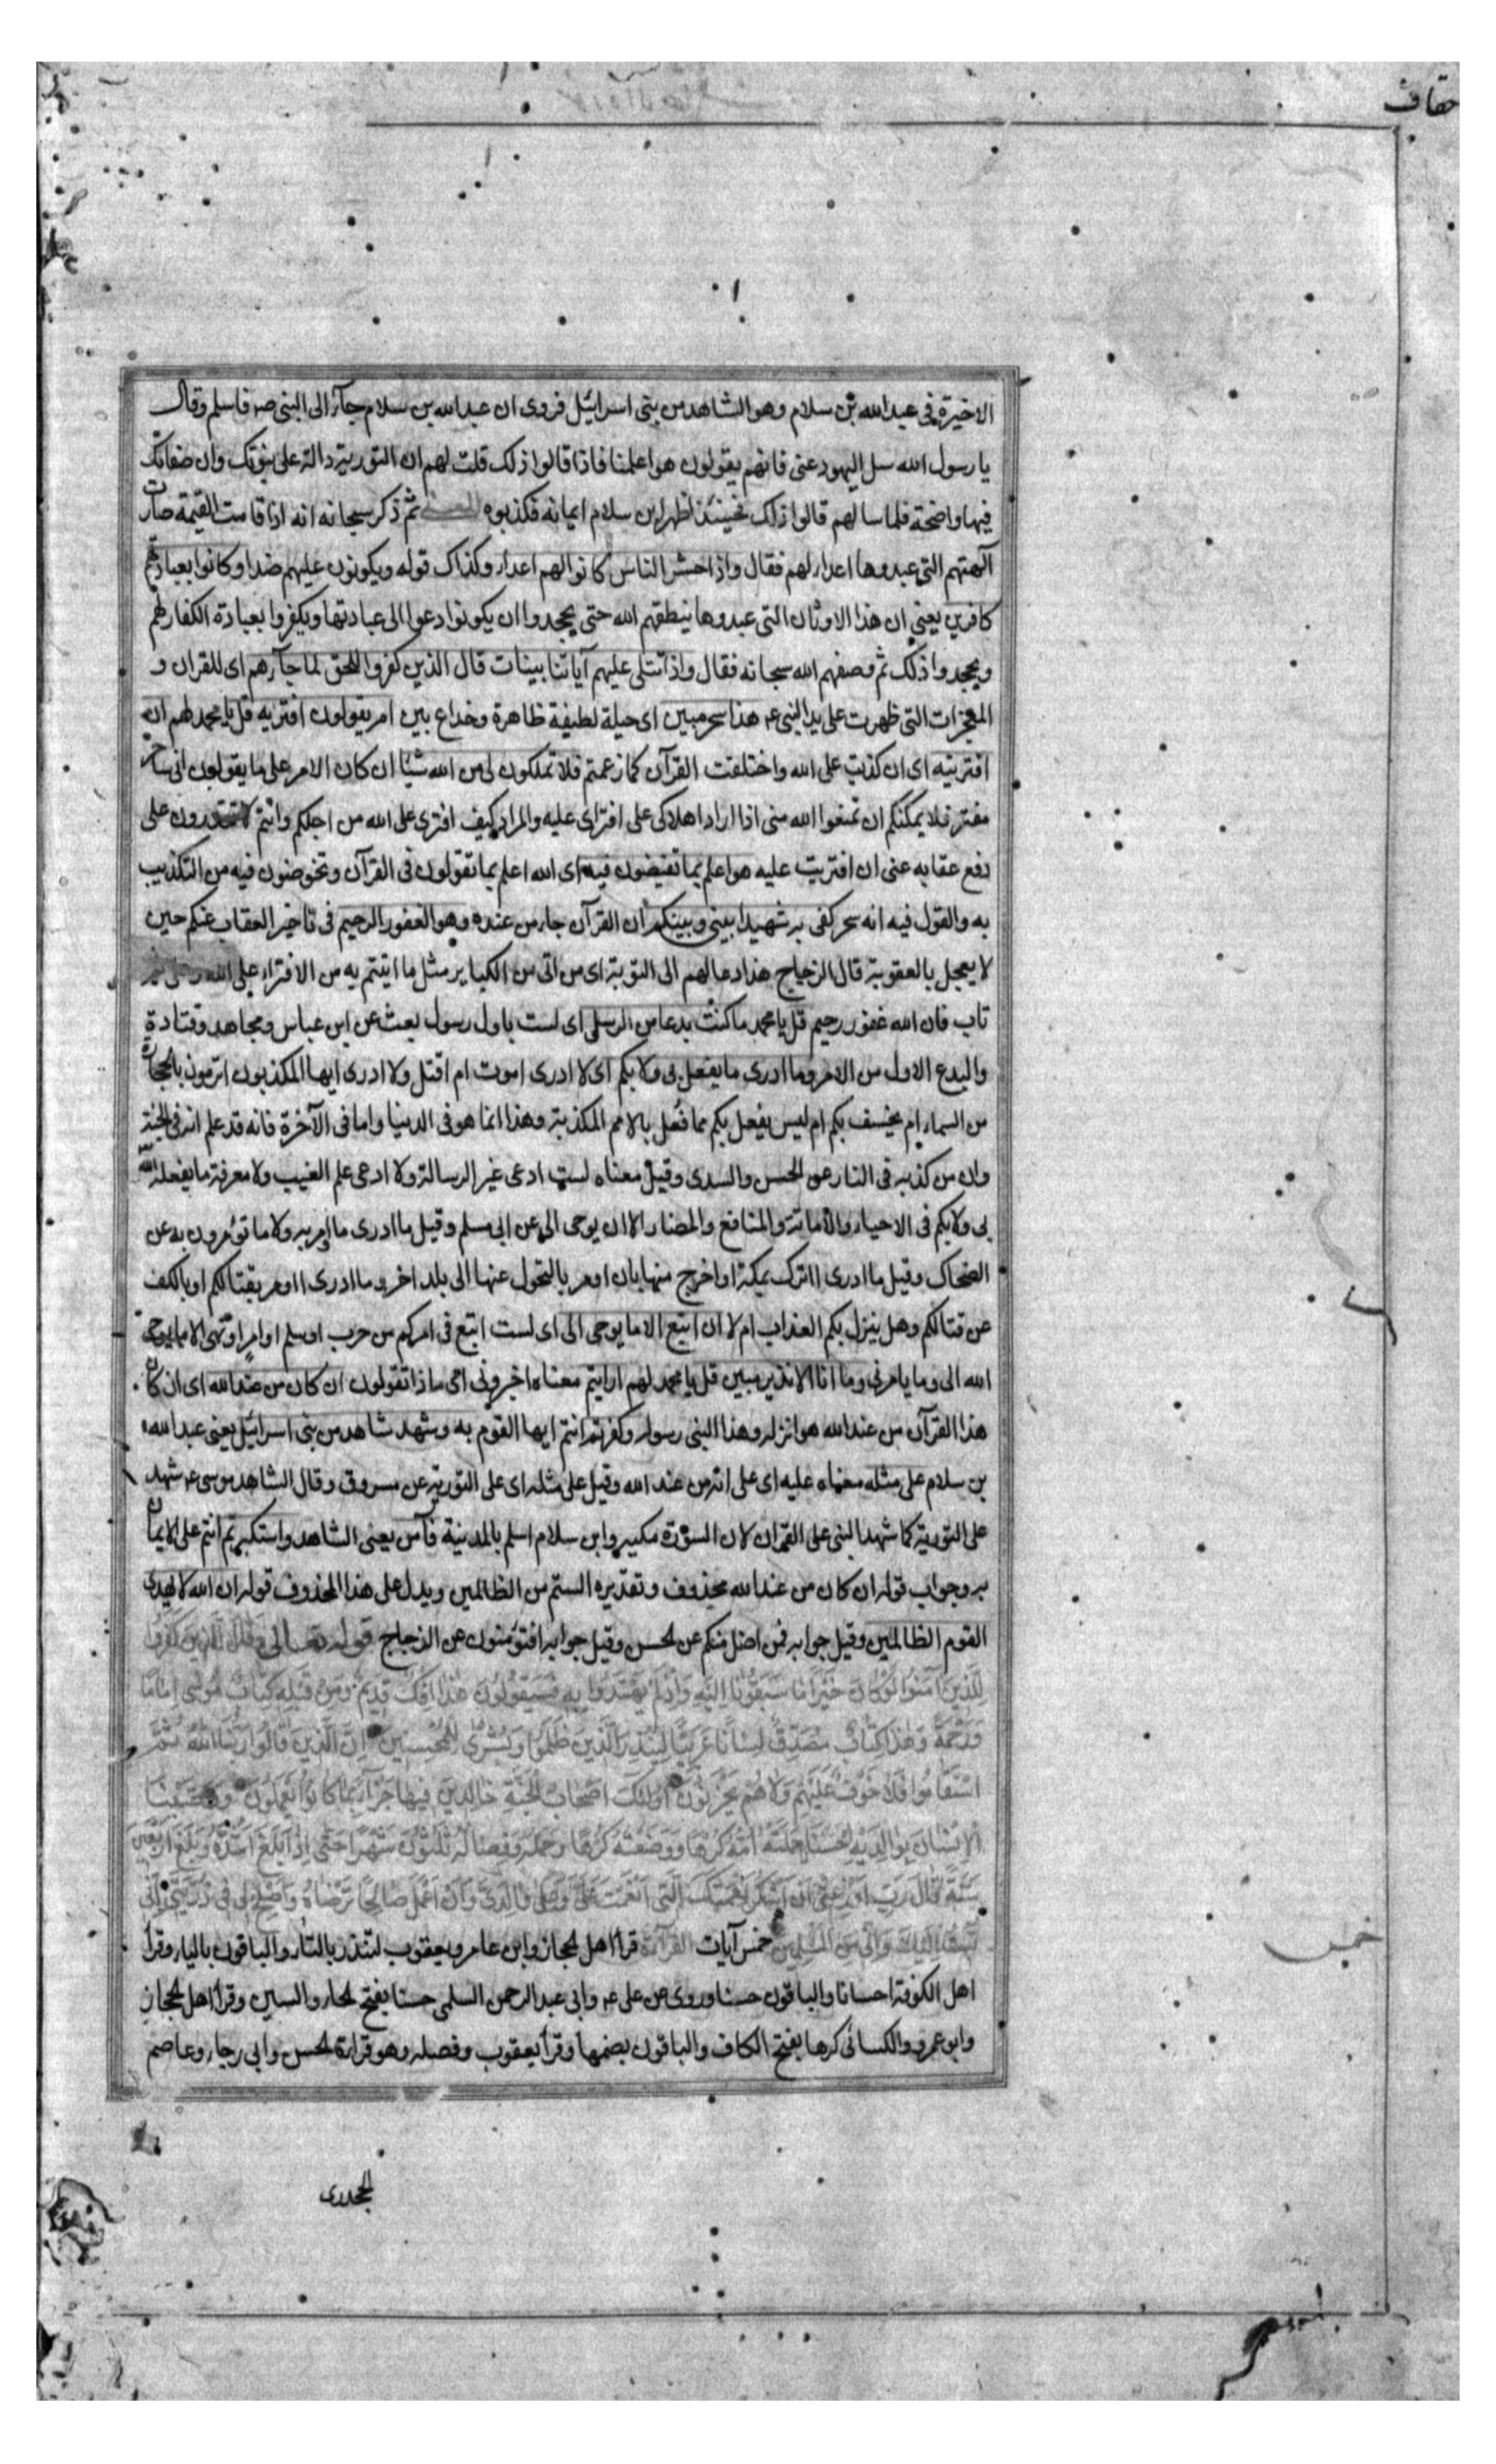 حقاف
الاخيرة في عبد الله بن سلام وهو الشاهد من بنى اسرائيل فروى ان عبد الله بن سلام جآء الى النبى صم فاسلم وقال
يا رسول الله سل اليهود عنى فانهم يقولون هو اعلمنا فاذا قالوا ذلك قلت لهم ان التورية دالة على نبوتك وان صفاتك
فيها واضحة فلما سالهم قالوا ذلك فحينئذ اظهر ابن سلام ايمانه فكذبوه ثم ذكر سبحانه انه اذا قامت القيمة صارت
آلهتهم التى عبدوها اعداء لهم فقال واذا حشر الناس كانوا لهم اعداء وكذلك قوله ويكونون عليهم ضدا وكانوا بعبادتهم
كافرين يعني ان هذا الاوثان التى عبدوها ينطقهم الله حتى يجحدوا ان يكونوا دعوا الى عبادتها ويكفروا بعبادة الكفار لهم
ويجحدوا ذلك ثم وصفهم الله سبحانه فقال واذا تتلى عليهم آياتنا بينات قال الذين كفروا للحق لما جآءهم اى للقران و
المعجزات التى ظهرت على يد النبى عم هذا سحر مبين اى حيلة لطيفة ظاهرة وخداع بين ام يقولون افتريه قل يا محمد لهم ان
افتريته اى ان كذبت على الله واختلقت القرآن كما زعمتم فلا تملكون لى من الله شيئا ان كان الامر على ما يقولون انى ساحر
مفتر فلا يمكنكم ان تمنعوا الله منى اذا اراد اهلاكى على افترائ عليه والمراد كيف افترى على الله من اجلكم وانتم لا تقدرون على
دفع عقابه عنى ان افتريت عليه هو اعلم بما تفيضون فيه اى الله اعلم بما تقولون فى القرآن وتخوضون فيه من التكذيب
به والقول فيه انه سحر كفى به شهيدا بينى وبينكم ان القرآن جاء من عنده وهو الغفور الرحيم فى تاخير العقاب عنكم حين
لا يعجل بالعقوبة قال الزجاج هذا دعا لهم الى التوبة اى من اتى من الكباير مثل ما اتيتم به من الافتراء على الله
تاب فان الله غفور رحيم قل يا محمد ما كنت بدعا من الرسل اى لست باول رسول بعث عن ابن عباس ومجاهد وقتادة
والبدع الاول من الامر وما ادرى ما يفعل بى ولا بكم اى لا ادرى اموت ام اقتل ولا ادرى ايها المكذبون اترمون بالحجارة
من السماء ام يخسف بكم ام ليس يفعل بكم مما فعل بالامم المكذبة وهذا انما هو فى الدنيا واما فى الآخرة فانه قد علم انه فى الجنة
وان من كذبه فى النار عن الحسن والسدى وقيل معناه لست ادعى غير الرسالة ولا ادعى علم الغيب ولا معرفة ما يفعله الله
بى ولا بكم فى الاحياء والاماتة والمنافع والمضار الا ان يوحى الى عن ابى مسلم وقيل ما ادرى ما اومر به ولا ما تؤمرون به عن
الضحاك وقيل ما ادرى ااترك بمكة او اخرج منها بان اومر بالتحول عنها الى بلد اخر وما ادرى ااومر بقتالكم او بالكف
عن قتالكم وهل ينزل بكم العذاب ام لا ان اتبع الا ما يوحى الى اى لست اتبع فى امركم من حرب او سلم او امر او نهى الا ما يوحى
الله الى وما يامرنى وما انا الا نذير مبين قل يا محمد لهم ارايتم معناه اخبرونى اى ماذا تقولون ان كان من عند الله اى ان كان
هذا القرآن من عند الله هو انزله وهذا النبى رسوله وكفرتم انتم ايها القوم به وشهد شاهد من بنى اسرائيل يعنى عبد الله
بن سلام على مثله معناه عليه اى على انه من عند الله وقيل على مثله اى على التورية عن مسروق وقال الشاهد موسى عم شهد
على التورية كما شهد النبى على القران لان السورة مكية وابن سلام اسلم بالمدينة فآمن يعنى الشاهد واستكبرتم انتم على الايمان
به وجواب قوله ان كان من عند الله محذوف وتقديره الستم من الظالمين ويدل على هذا المحذوف قوله ان الله لا يهدى
القوم الظالمين وقيل جوابه فمن اضل منكم عن الحسن وقيل جوابه افتؤمنون عن الزجاج قوله تعالى وقال الذين كفروا
للذين آمنوا لو كان خيرا ما سبقونا اليه واذ لم يهتدوا به فسيقولون هذا افك قديم ومن قبله كتاب موسى اماما
ورحمة وهذا كتاب مصدق لسانا عربيا لينذر الذين ظلموا وبشرى للمحسنين ان الذين قالوا ربنا الله ثم
استقاموا فلا خوف عليهم ولا هم يحزنون اولئك اصحاب الجنة خالدين فيها جزآء بما كانوا يعملون ووصينا
الانسان بوالديه احسنا حملته امه كرها ووضعته كرها وحمله وفصاله ثلثون شهرا حتى اذا بلغ اشده وبلغ اربعين
سنة قال رب اوزعنى ان اشكر نعمتك التى انعمت على وعلى والدى وان اعمل صالحا ترضاه واصلح لى فى ذريتى انى
تبت اليك وانى من المسلمين خمس آيات القرآءة قرأ اهل الحجاز وابن عامر ويعقوب لتنذر بالتاء والباقون بالياء وقرأ
اهل الكوفة احسانا والباقون حسنا وروى عن على عم وابى عبد الرحمن السلمى حسنا بفتح الحاء والسين وقرأ اهل الحجاز
وابو عمرو والكسائى كرها بفتح الكاف والباقون بضمها وقرأ يعقوب وفصله وهو قراءة الحسن وابى رجاء وعاصم
خمس
الجحدرى